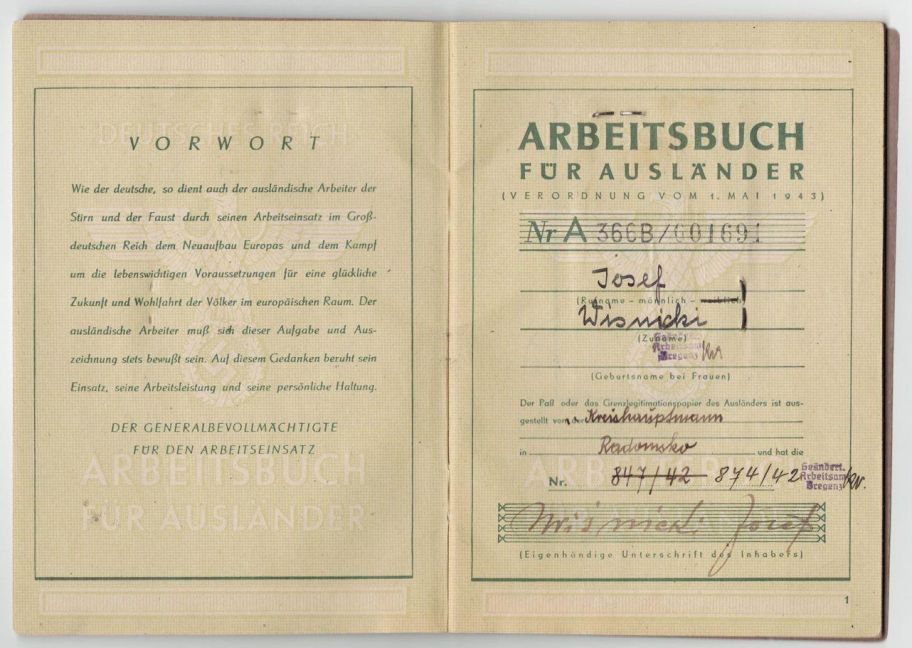 DEUTSCHES REICH
VORWORT
Wie der deutsche, so dient auch der ausländische Arbeiter der
Stirn und der Faust durch seinen Arbeitseinsatz im Groß-
deutschen Reich dem Neuaufbau Europas und dem Kampf
um die lebenswichtigen Voraussetzungen für eine glückliche
Zukunft und Wohlfahrt der Völker im europäischen Raum. Der
ausländische Arbeiter muß sich dieser Aufgabe und Aus-
zeichnung stets bewußt sein. Auf diesem Gedanken beruht sein
Einsatz, seine Arbeitsleistung und seine persönliche Haltung.
DER GENERALBEVOLLMÄCHTIGTE
FÜR DEN ARBEITSEINSATZ
ARBEITSBUCH
FÜR AUSLÄNDER
ARBEITSBUCH
FÜR AUSLÄNDER
(VERORDNUNG VOM 1. MAI 1943)
Nr A 366B/001691
Josef
(Rufname – männlich – weiblich)
Wisnicki
(Zuname)
Geändert
Arbeitsamt
Bregenz
(Geburtsname bei Frauen)
Der Paß oder das Grenzlegitimationspapier des Ausländers ist aus-
gestellt von der Kreishauptmann
in Radomsko und hat die
Nr. 847/42 874/42
Geändert.
Arbeitsamt
Bregenz
Wiśnicki Józef
(Eigenhändige Unterschrift des Inhabers)
1